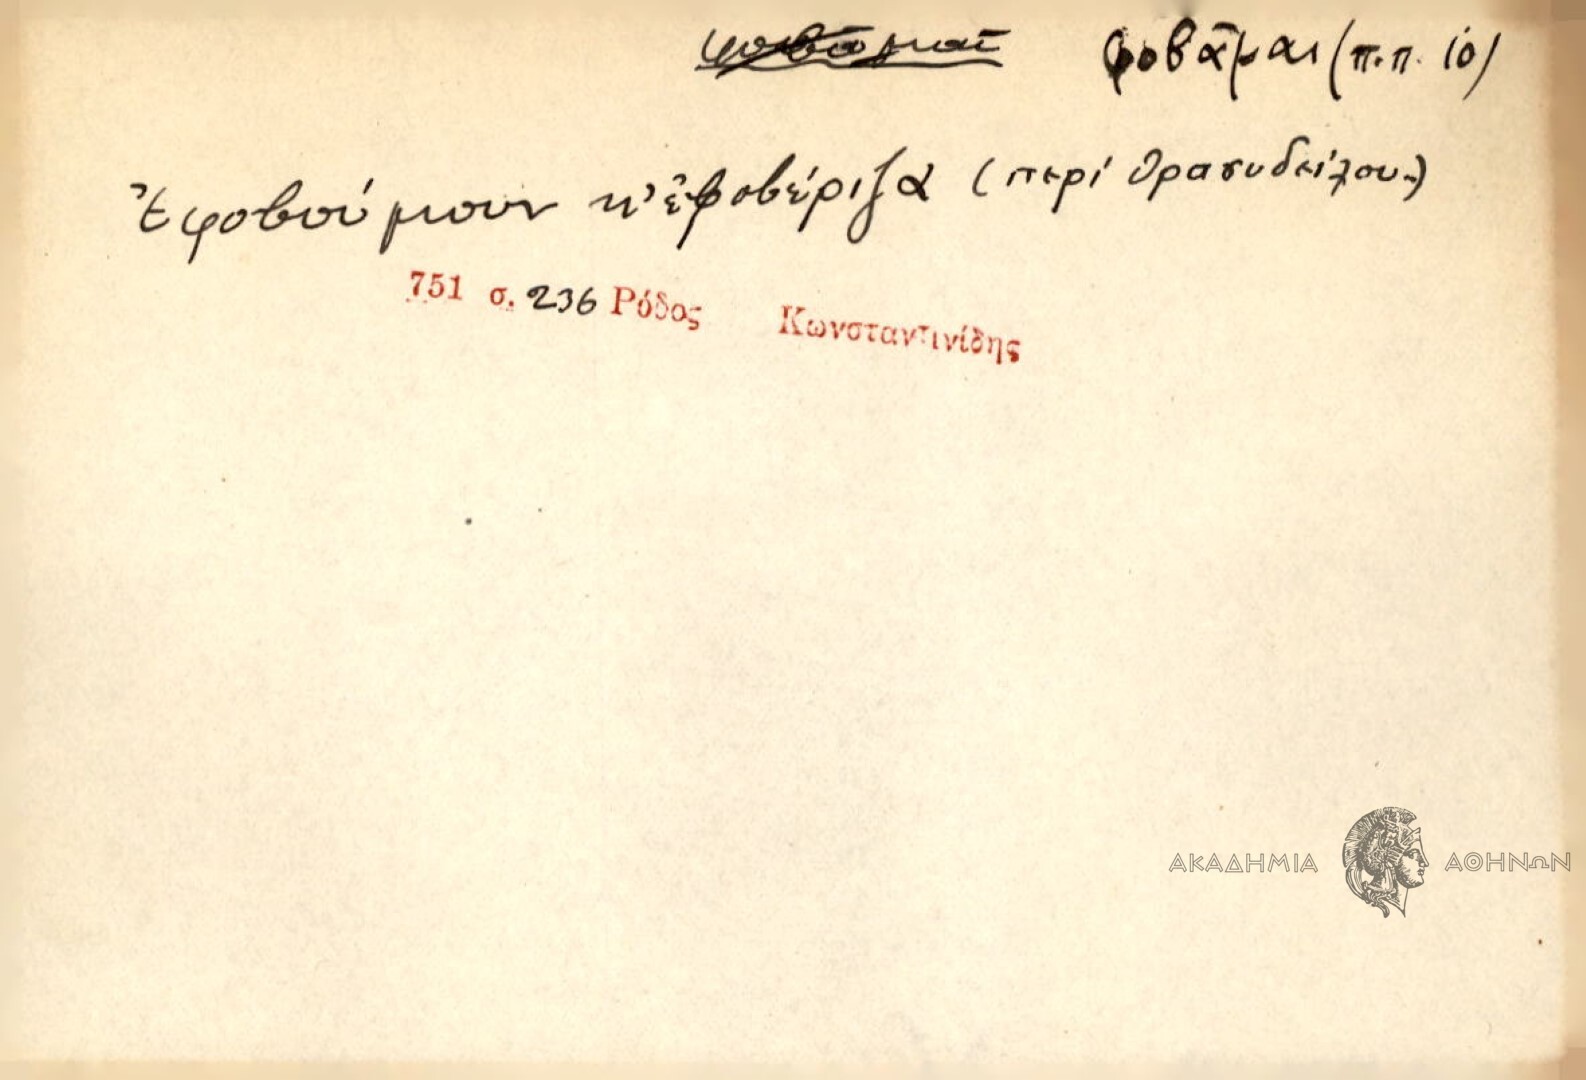 φοβᾶμαι φοβᾶμαι (π.π. 10)
Ἐφοβούμουν κ' ἐφοβέριζα (περί θρασυδείλου.)
751 σ. 236 Ρόδος Κωνσταντινίδης
ΑΚΑΔΗΜΙΑ ΑΘΗΝΩΝ